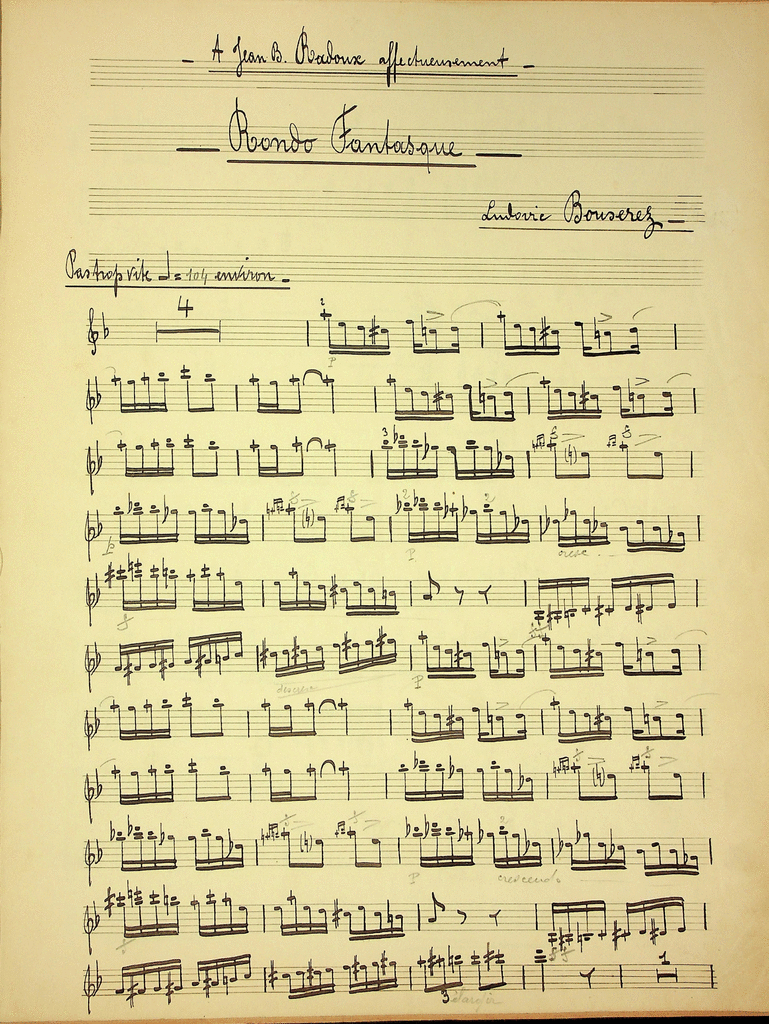 A Jean B. Radoux affectueusement
Rondo Fantasque
Ludovic Bouserez
Pas trop vite ♩ = 104 environ
4
2
P
3
P
2
P
cresc...
descresc
P
2
P
crescendo
3
élargir
1